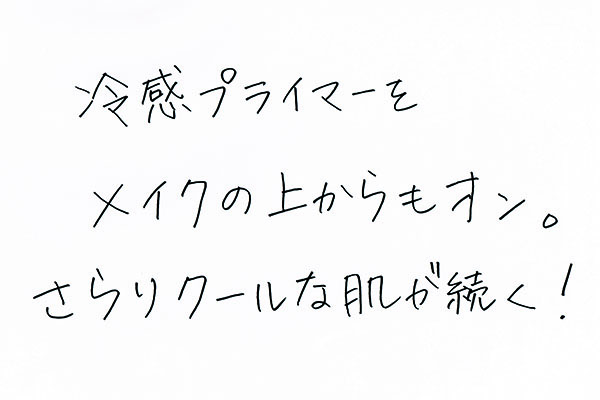 冷感プライマーを
メイクの上からもオン。
さらりクールな肌が続く！